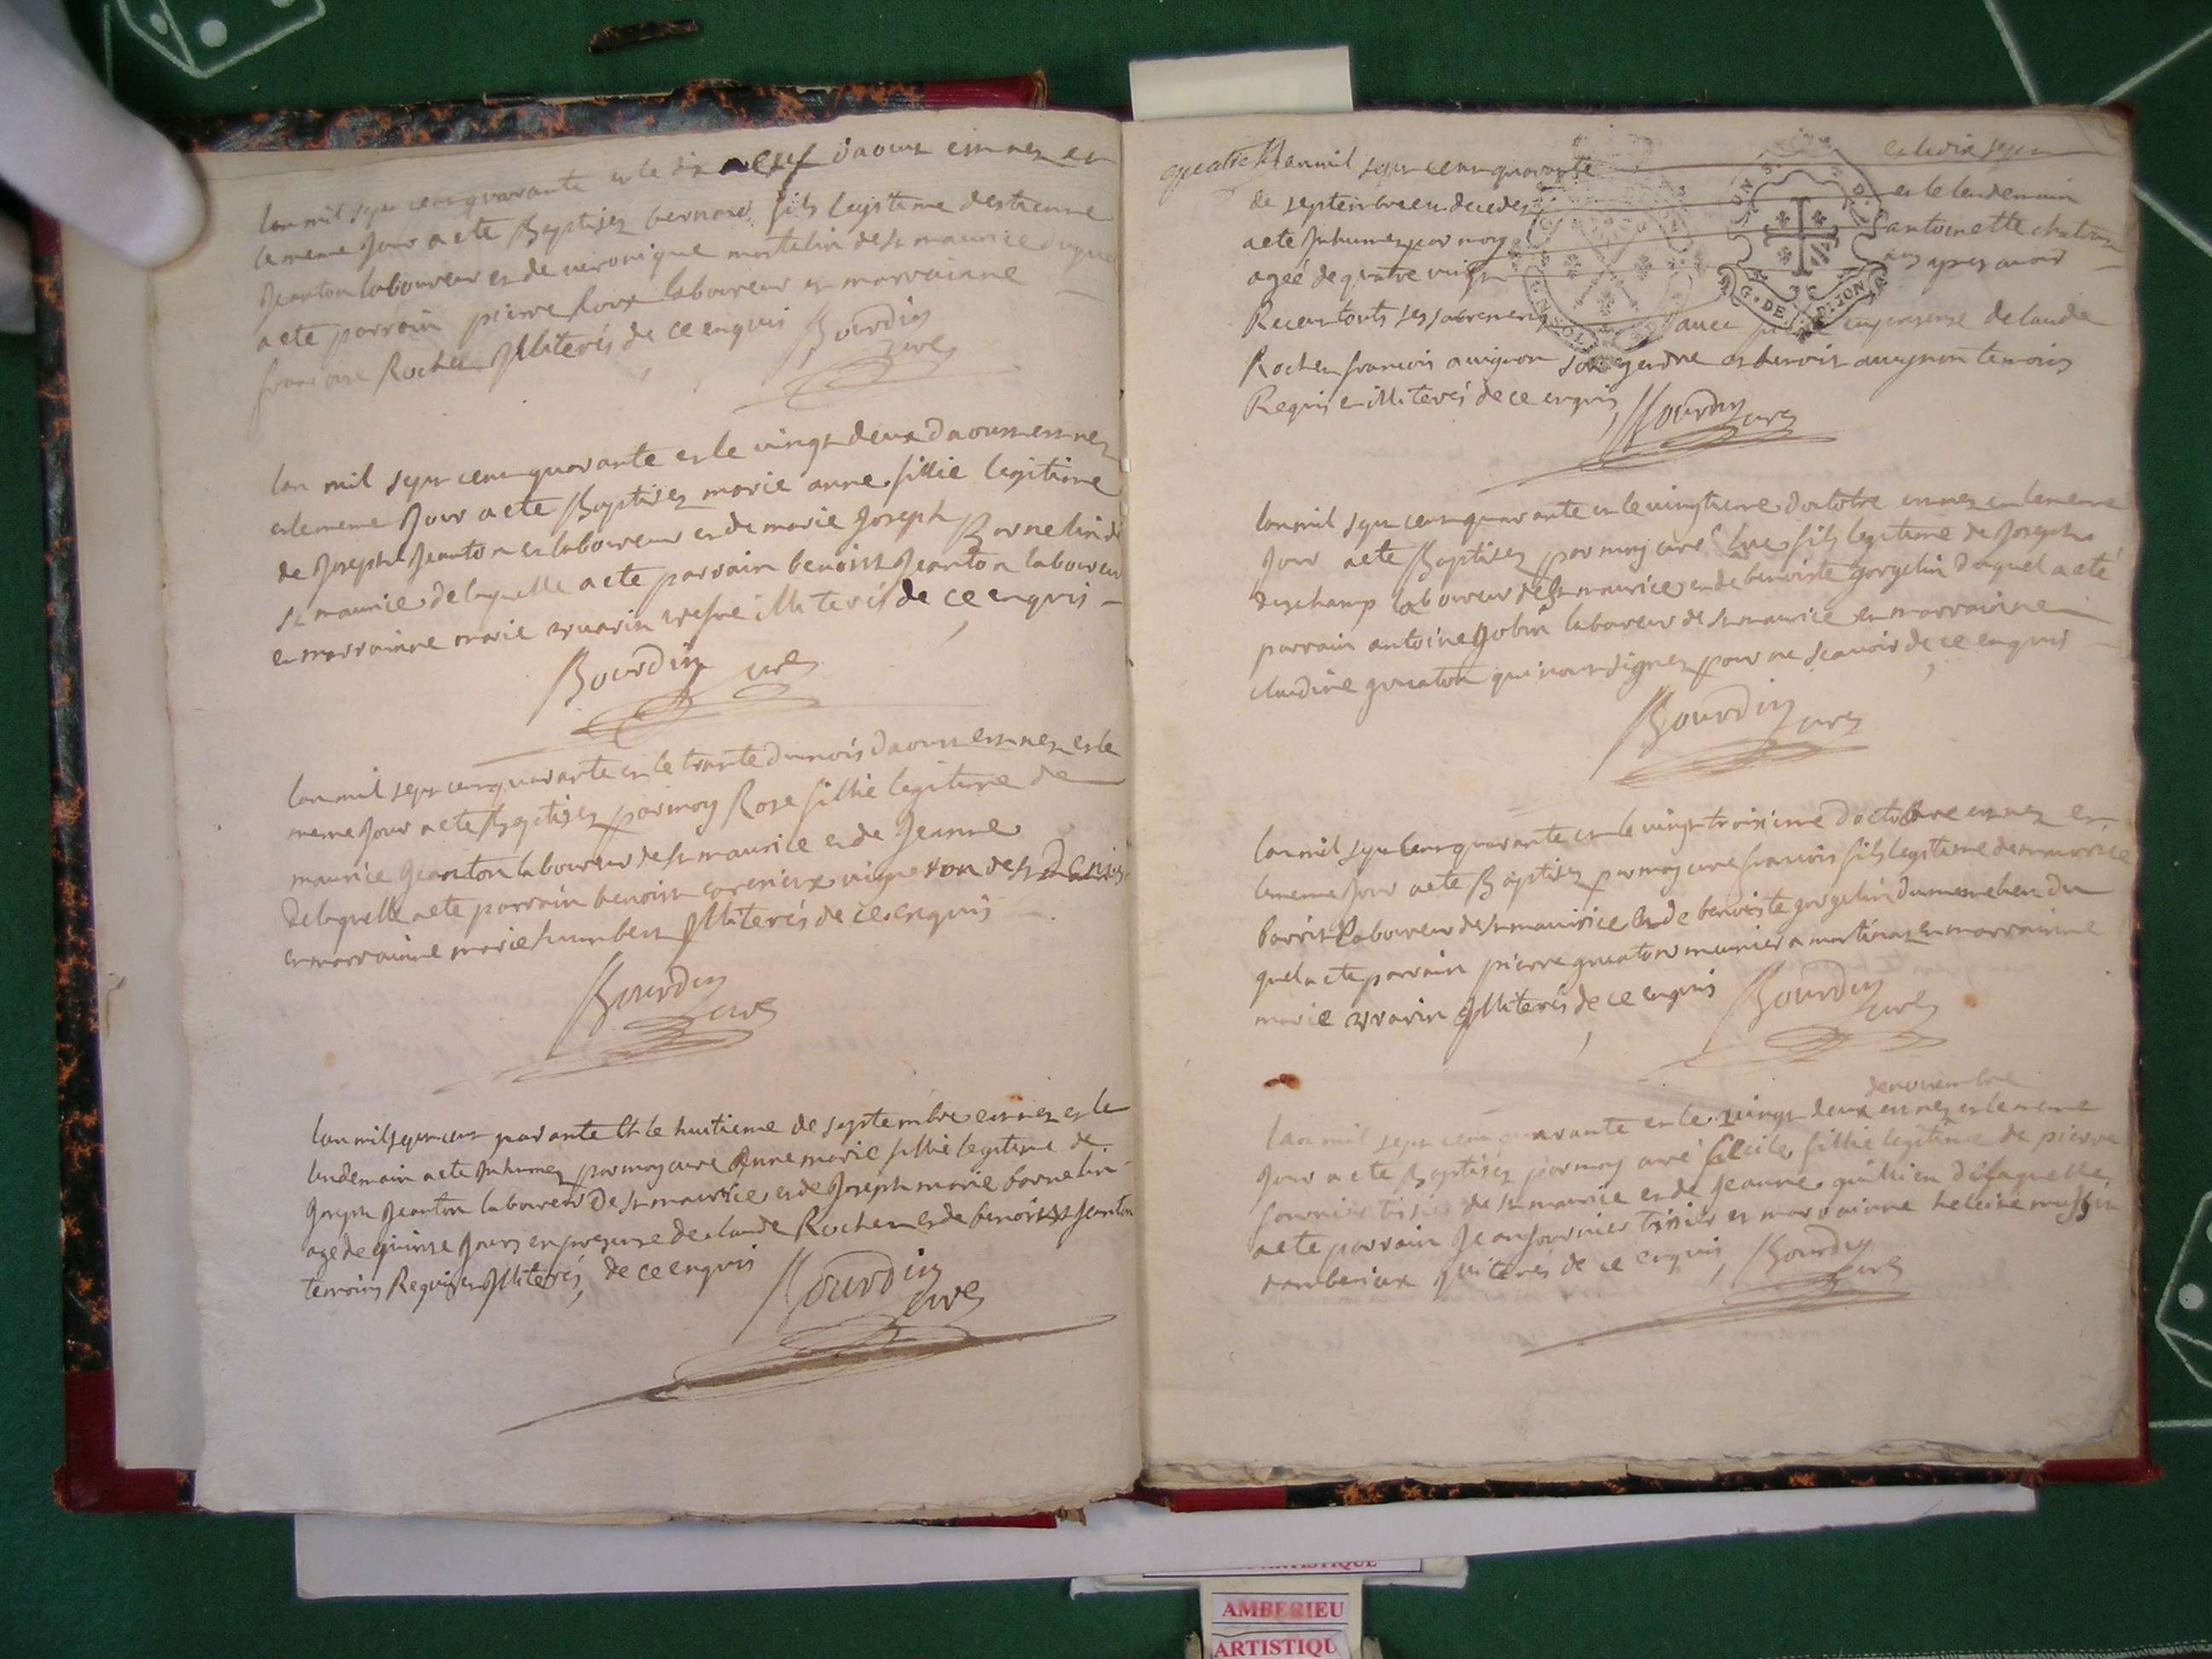 lan mil sept cent quarante et le dix neuf daoust est nez et
le meme Jour a ete Baptisez bernard fils legitime destienne
Jeanton laboureur et de veronique martelin de st maurice duquel
a ete parrain pierre Roux laboureur et marrainne
francoise Rochet Illiterés de ce enquis Bourdin
curé
lan mil sept cent quarante et le vingt deux daoust est nez
et le meme Jour a ete Baptisez marie anne fillie legitime
de Joseph Jeanton et laboureur et de marie Joseph Barnelin de
st maurice de laquelle a ete parrain benoist Jeanton laboureur
et marrainne marie illiterés de ce enquis
Bourdin curé
lan mil sept cent quarante et le trante du mois daoust est nez et le
meme Jour a ete Baptisez par moy Rose fillie legitime de
maurice Jeanton laboureur de st maurice et de Jeanne
de laquelle a ete parrain benoist vigneron de st Denis
et marrainne marie humbert Illiterés de ce enquis
Bourdin
curé
lan mil sept cent quarante Et le huitieme de septembre est nez et le
lendemain a ete Inhumez par moy curé Anne marie fillie legitime de
Joseph Jeanton laboureur De st maurice et de Joseph marie barnelin
age de quinse Jours en presense de claude Rochet et de benoist Jeanton
temoins Requis et Illiterés de ce enquis Bourdin
curé
quatre
lan mil sept cent quarante et le dix sept
de septembre est decedez et le lendemain
a ete Inhumez par moy antoinette
ageé de quatre vingt ans apres avoir
Receu touts ses sacrements avec en presense de claude
Rochet francois avignon son gendre et benoist avignon temoins
Requis et illiterés de ce enquis Bourdin curé
lan mil sept cent quarante et le vingtieme doctobre est nez et le meme
Jour a ete Baptisez par moy curé luc fils legitime de Joseph
deschamp laboureur de st maurice et de benoiste gorgelin duquel a eté
parrain antoine Jobin laboureur de st maurice et marrainne
claudine gruaton qui nont signez pour ne scavoir de ce enquis
Bourdin curé
lan mil sept cent quarante et le vingt troisieme doctobre est nez et
le meme Jour a ete Baptisez par moy curé francois fils legitime de maurice
laboureur de st maurice et de benoiste gorgelin du meme lieu du
quel a ete parrain pierre gruaton meunier a martinaz et marrainne
marie Illiterés de ce enquis Bourdin
curé
de novembre
lan mil sept cent quarante et le vingt deux est nez et le meme
Jour a ete Baptisez par moy curé Cecile fillie legitime de pierre
fournier tisier de st maurice et de Jeanne guillien de laquelle
a ete parrain Jean fournier tisier et marrainne heleine
damberieux Illiterés de ce enquis Bourdin
curé
G·DE DIJON
AMBERIEU
ARTISTIQU